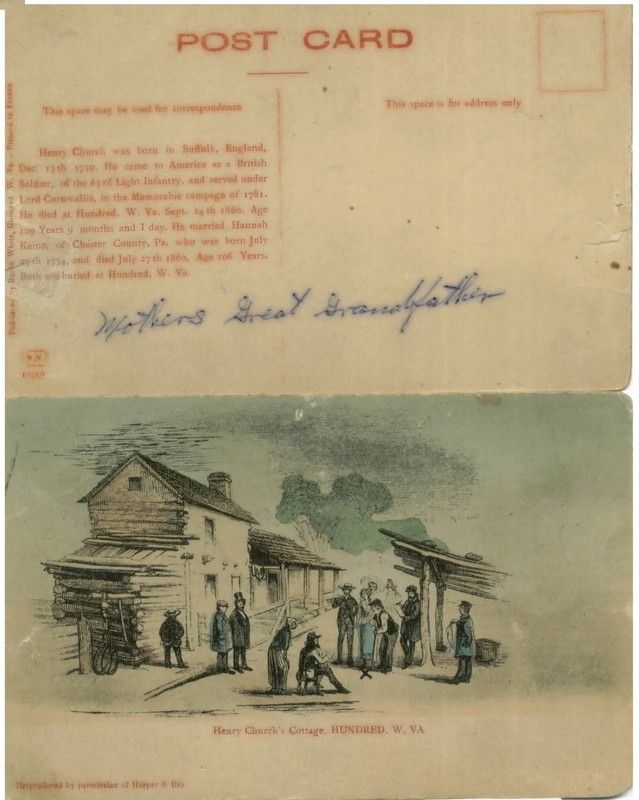 POST CARD
This space may be used for correspondence
This space is for address only
Henry Church was born in Suffolk, England,
Dec. 13th 1750. He came to America as a British
Soldier, of the 63rd Light Infantry, and served under
Lord Cornwallis, in the Memorable campaga of 1781.
He died at Hundred. W. Va. Sept. 14th 1860. Age
109 Years 9 months and 1 day. He married Hannah
Keine, of Chester County, Pa. who was born July
27th 1754, and died July 27th 1860, Age 106 Years.
Both are buried at Hundred. W. Va.
Mothers Great Grandfather
Hundred, W. Va. - Printed in France
Henry Church's Cottage, HUNDRED, W. VA
Reproduced by permission of Harper & Bro